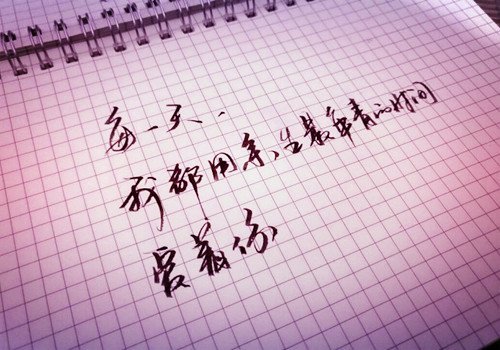 每一天，
我都用余生最年青的时间
爱着你